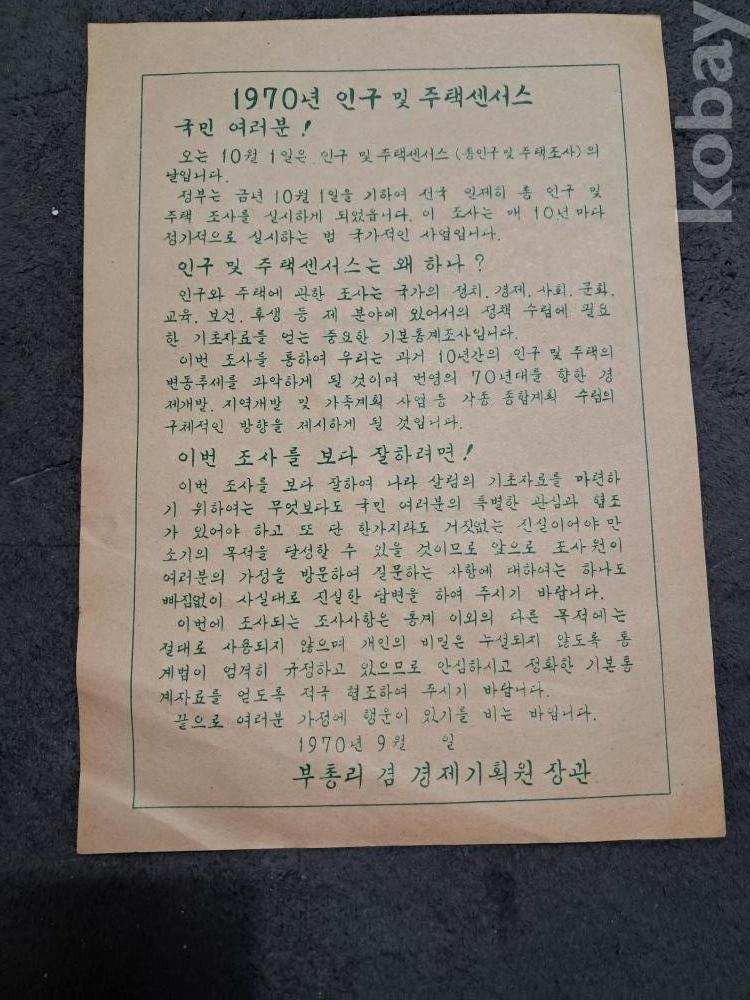 1970년 인구 및 주택센서스
국민 여러분!
오는 10월 1일은 인구 및 주택센서스 (총인구 및 주택조사)의
날입니다.
정부는 금년 10월 1일을 기하여 전국 일제히 총 인구 및
주택 조사를 실시하게 되었읍니다. 이 조사는 매 10년 마다
정기적으로 실시하는 범 국가적인 사업입니다.
인구 및 주택센서스는 왜 하나?
인구와 주택에 관한 조사는 국가의 정치, 경제, 사회, 문화,
교육, 보건, 후생 등 제 분야에 있어서의 정책 수립에 필요
한 기초자료를 얻는 중요한 기본통계조사입니다.
이번 조사를 통하여 우리는 과거 10년간의 인구 및 주택의
변동추세를 파악하게 될 것이며 번영의 70년대를 향한 경
제개발, 지역개발 및 가족계획 사업 등 각종 종합계획 수립의
구체적인 방향을 제시하게 될 것입니다.
이번 조사를 보다 잘하려면!
이번 조사를 보다 잘하여 나라 살림의 기초자료를 마련하
기 위하여는 무엇보다도 국민 여러분의 특별한 관심과 협조
가 있어야 하고 또 단 한가지라도 거짓없는 진실이어야 만
소기의 목적을 달성할 수 있을 것이므로 앞으로 조사원이
여러분의 가정을 방문하여 질문하는 사항에 대하여는 하나도
빠짐없이 사실대로 진실한 답변을 하여 주시기 바랍니다.
이번에 조사되는 조사사항은 통계 이외의 다른 목적에는
절대로 사용되지 않으며 개인의 비밀은 누설되지 않도록 통
계법이 엄격히 규정하고 있으므로 안심하시고 정확한 기본통
계자료를 얻도록 적극 협조하여 주시기 바랍니다.
끝으로 여러분 가정에 행운이 있기를 비는 바입니다.
1970년 9월 일
부총리 겸 경제기획원 장관
kobay